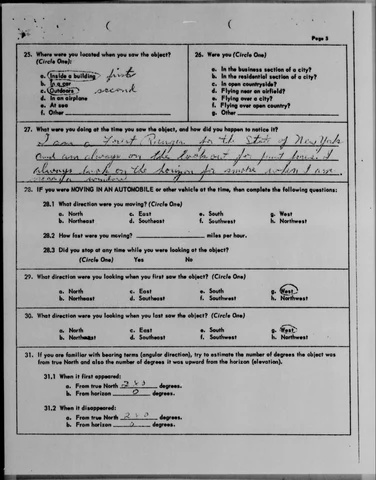 Page 5
25. Where were you located when you saw the object?
(Circle One):
a. Inside a building first
b. In a car
c. Outdoors second
d. In an airplane
e. At sea
f. Other
26. Were you (Circle One)
a. In the business section of a city?
b. In the residential section of a city?
c. In open countryside?
d. Flying near an airfield?
e. Flying over a city?
f. Flying over open country?
g. Other
27. What were you doing at the time you saw the object, and how did you happen to notice it?
I am a Forest Ranger for the State of New York
and am always on the lookout for
always look on the for smoke when I am
28. IF you were MOVING IN AN AUTOMOBILE or other vehicle at the time, then complete the following questions:
28.1 What direction were you moving? (Circle One)
a. North c. East e. South g. West
b. Northeast d. Southeast f. Southwest h. Northwest
28.2 How fast were you moving? miles per hour.
28.3 Did you stop at any time while you were looking at the object?
(Circle One) Yes No
29. What direction were you looking when you first saw the object? (Circle One)
a. North c. East e. South g. West
b. Northeast d. Southeast f. Southwest h. Northwest
30. What direction were you looking when you last saw the object? (Circle One)
a. North c. East e. South g. West
b. Northeast d. Southeast f. Southwest h. Northwest
31. If you are familiar with bearing terms (angular direction), try to estimate the number of degrees the object was
from true North and also the number of degrees it was upward from the horizon (elevation).
31.1 When it first appeared:
a. From true North degrees.
b. From horizon 0 degrees.
31.2 When it disappeared:
a. From true North degrees.
b. From horizon degrees.